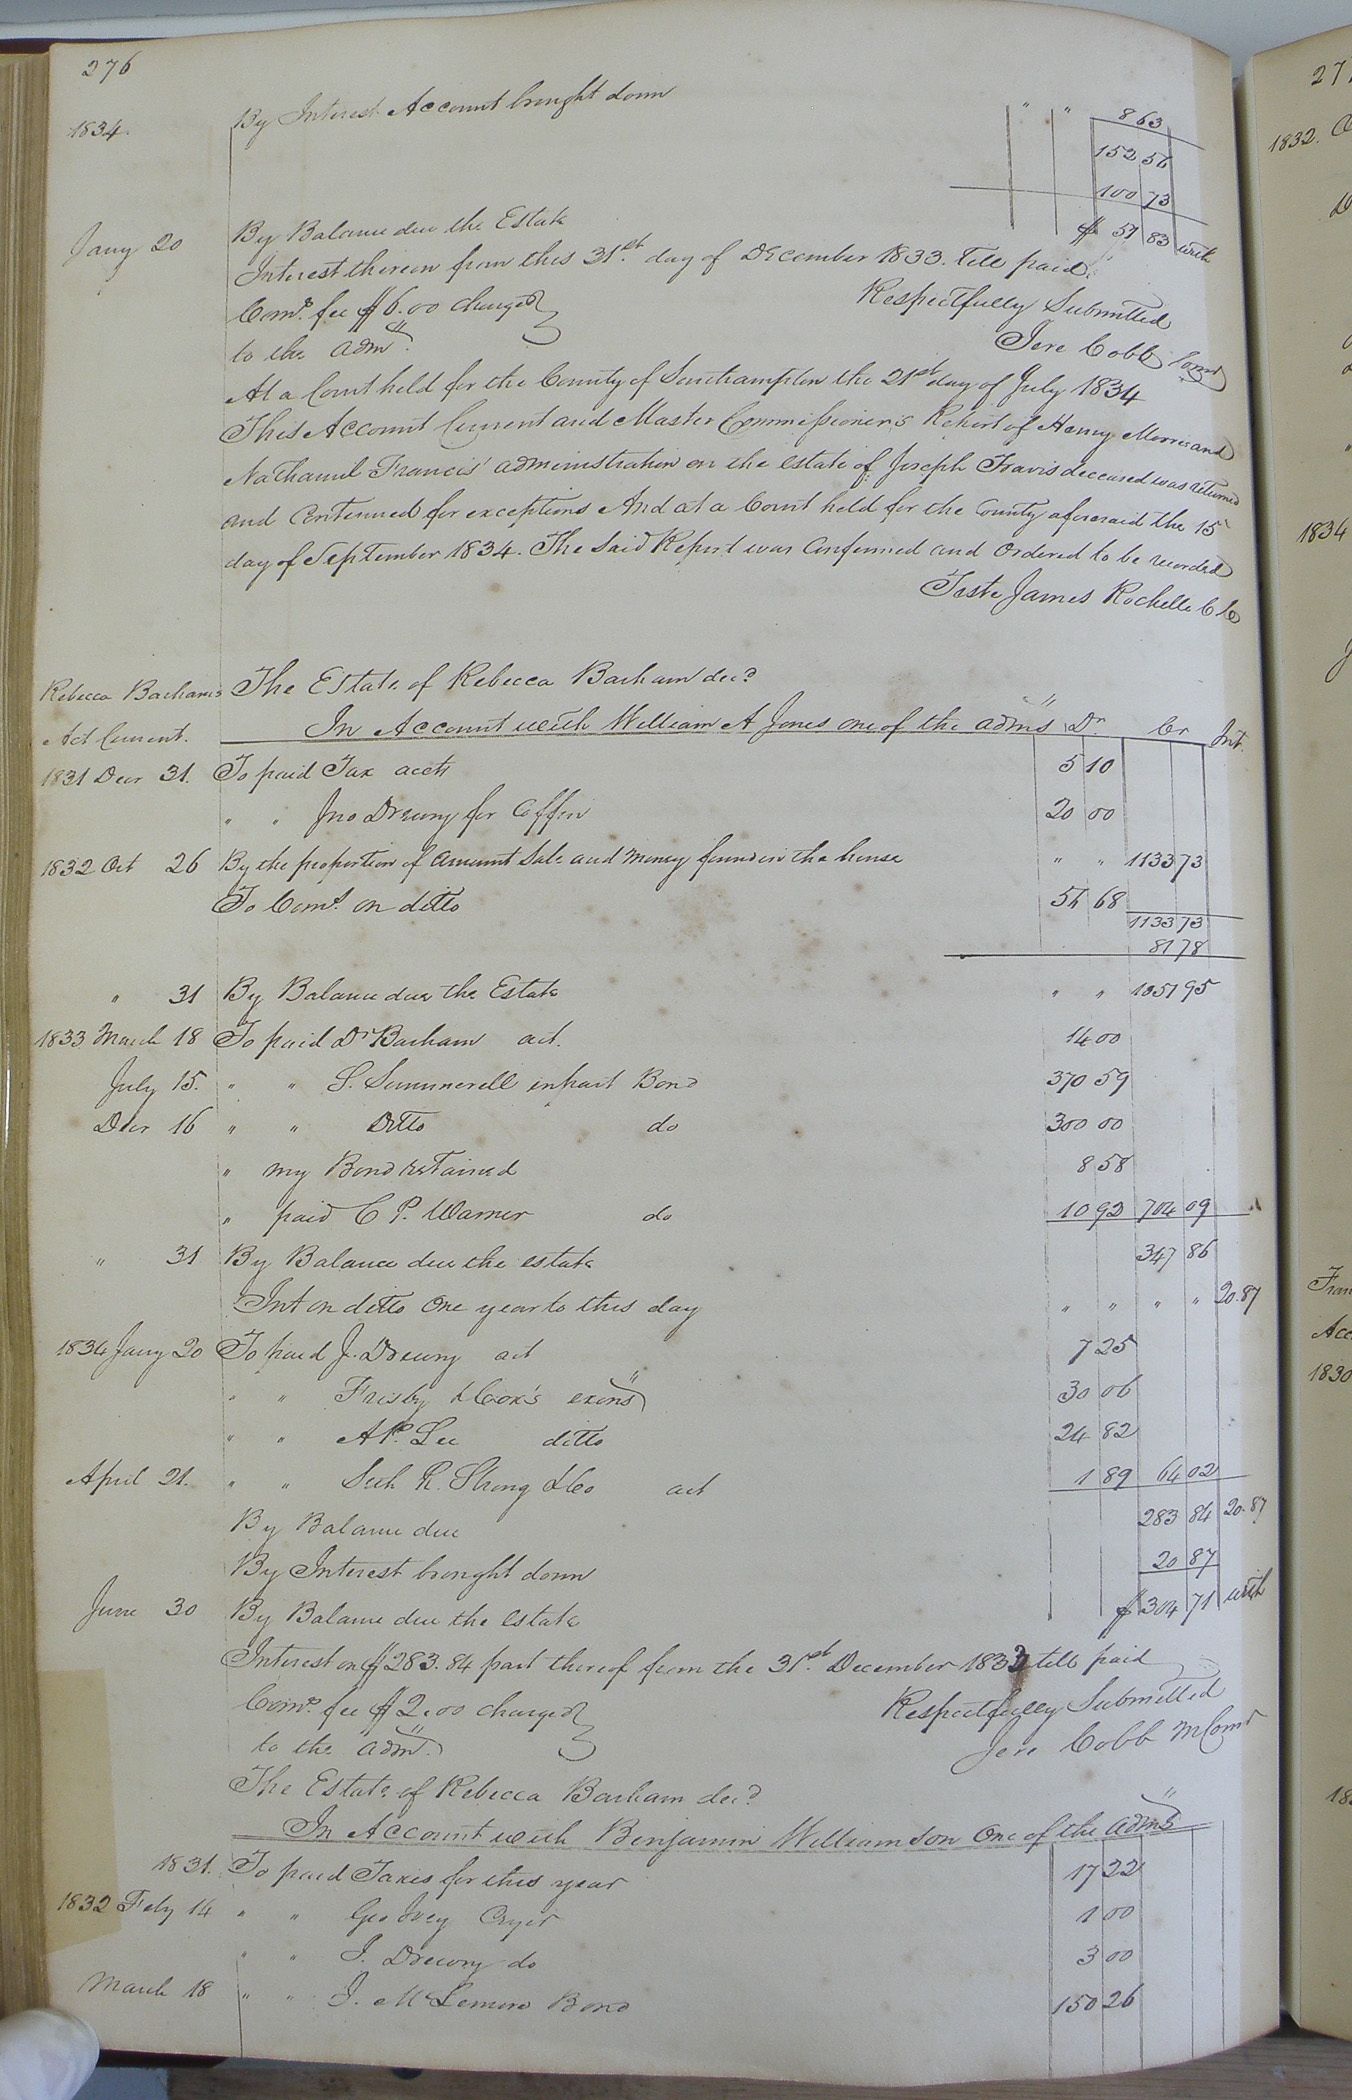 276
1834. By Interest Account brought down " " 8 63
152 56
100 73
Jany 20 By Balance due the Estate $ 51 83 with
Interest thereon from this 31st. day of December 1833. till paid.
Coms. fee $6.00 charged Respectfully Submitted
to the Admr. Jere Cobb Comr
At a Court held for the County of Southampton the 21st day of July 1834
This Account Current and Master Commissioners Report of Henry Morris and
Nathaniel Francis' administration on the estate of Joseph Travis deceased was returned
and Continued for exceptions And at a Court held for the County aforesaid the 15
day of September 1834. The Said Report was Confirmed and Ordered to be recorded
Teste James Rochelle C C
Rebecca Barhams The Estate of Rebecca Barham decd
Act Current. In Account with William A Jones one of the adms Dr Cr Int.
1831 Decr 31. To paid Tax acct 5 10
" " Jno Drewry for Coffin 20 00
1832 Oct 26 By the proportion of amount Sale and money found in the house " " 1133 73
To Coms. on ditto 56 68
1133 73
81 78
" 31 By Balance due the Estate " " 1051 95
1833 March 18 To paid Dr Barham act. 14 00
July 15. " " S. Summerell in part Bond 370 59
Decr 16 " " Ditto do 300 00
" my Bond retained 8 58
" paid C P. Warner do 10 92 704 09
" 31 By Balance due the estate 347 86
Int on ditto One year to this day " " " " 20.87
1834 Jany 20 To paid J. Drewry act 7 25
" " Frisby & Cox's exons 30 06
" " Lee ditto 24 82
April 21. " " Strong & Co act 1 89 64 02
By Balance due 283 84 20.87
By Interest brought down 20 87
June 30 By Balance due the estate $ 304 71 with
Interest on $283.84 part thereof from the 31st. December 1833 till paid
Coms. fee $2.00 charged Respectfully Submitted
to the adm. Jere Cobb M Comr
The Estate of Rebecca Barham decd
In Account with Benjamin Williamson One of the adms
1831. To paid Taxes for this year 17 22
1832 Feby 14 " " Geo Ivey Cryer 1 00
" " J. Drewry do 3 00
March 18 " " J. McLemore Bond 150 26
27
1832.
1834
Acc
1830